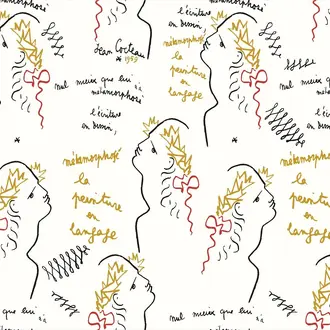 l'écriture
en dessin,
métamorphosé
la
peinture
en
langage
Jean Cocteau
* 1959
nul mieux que lui à
métamorphosé
l'écriture
en dessin,
*
métamorphosé
la
peinture
en
langage
métamorphosé
la
peinture
en
langage
nul mieux que lui à
métamorphosé
l'écriture
en dessin,
nul mieux que lui à
nul mieux que lui à